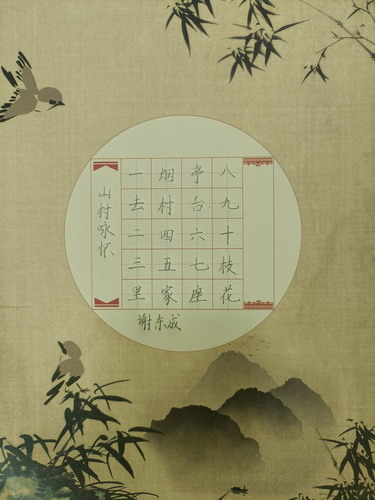 山村咏怀
一去二三里
烟村四五家
亭台六七座
八九十枝花
谢东成